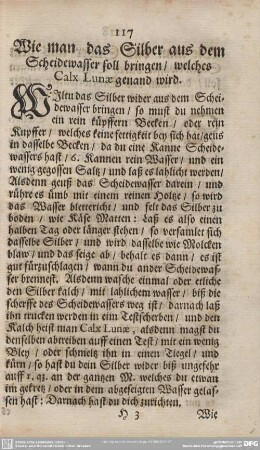 117
Wie man das Silber aus dem
Scheidewasser soll bringen/ welches
Calx Lunæ genand wird.
Wiltu das Silber wider aus dem Schei-
dewasser bringen/ so must du nehmen
ein rein küpffern Becken/ oder rein
Kupffer/ welches keine fettigkeit bey sich hat/ geus
in dasselbe Becken/ da du eine Kanne Scheide-
wassers hast/ 6. Kannen rein Wasser/ und ein
wenig gegossen Saltz/ und laß es lablicht werden/
Alsdenn geuß das Scheidewasser darein/ und
rühre es ümb mit einem reinen Holtze/ so wird
das Wasser bletericht/ und felt das Silber zu
boden/ wie Käse Matten: laß es also einen
halben Tag oder länger stehen/ so versamlet sich
dasselbe Silber/ und wird dasselbe wie Molcken
blaw/ und das seige ab/ behalt es dann/ es ist
gut fürzuschlagen/ wann du ander Scheidewas-
ser brennest. Alsdenn wasche einmal oder etliche
den Silber kalch/ mit lahlichem wasser/ biß die
scherffe des Scheidewassers weg ist/ darnach laß
ihn trucken werden in eim Testscherben/ und den
Kalch heist man Calx Lunæ, alsdenn magst du
denselben abtreiben auff einen Test/ mit ein wenig
Bley/ oder schmieltz ihn in einen Tiegel/ und
kürn/ so hast du dein Silber wider biß ungefehr
auff 1. qz. an der gantzen M. welches du etwan
im gekretz/ oder in dem abgeseigten Wasser gelas-
sen hast: Darnach hast du dich zurichten.
H 3 Wie